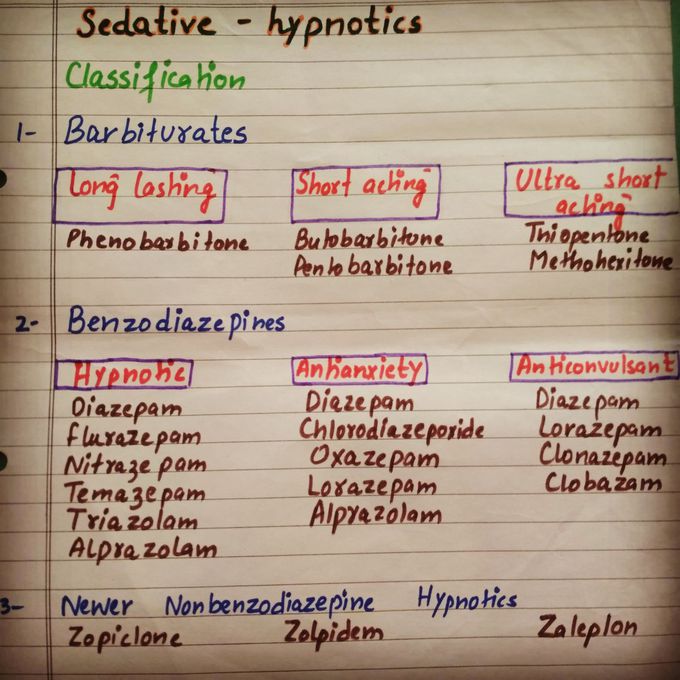 Sedative - hypnotics
Classification
1- Barbiturates
Long lasting Short acting Ultra short acting
Phenobarbitone Butobarbitone Thiopentone
Pentobarbitone Methohexitone
2- Benzodiazepines
Hypnotic Antianxiety Anticonvulsant
Diazepam Diazepam Diazepam
Flurazepam Chlorodiazepoxide Lorazepam
Nitrazepam Oxazepam Clonazepam
Temazepam Lorazepam Clobazam
Triazolam Alprazolam
Alprazolam
3- Newer Nonbenzodiazepine Hypnotics
Zopiclone Zolpidem Zaleplon